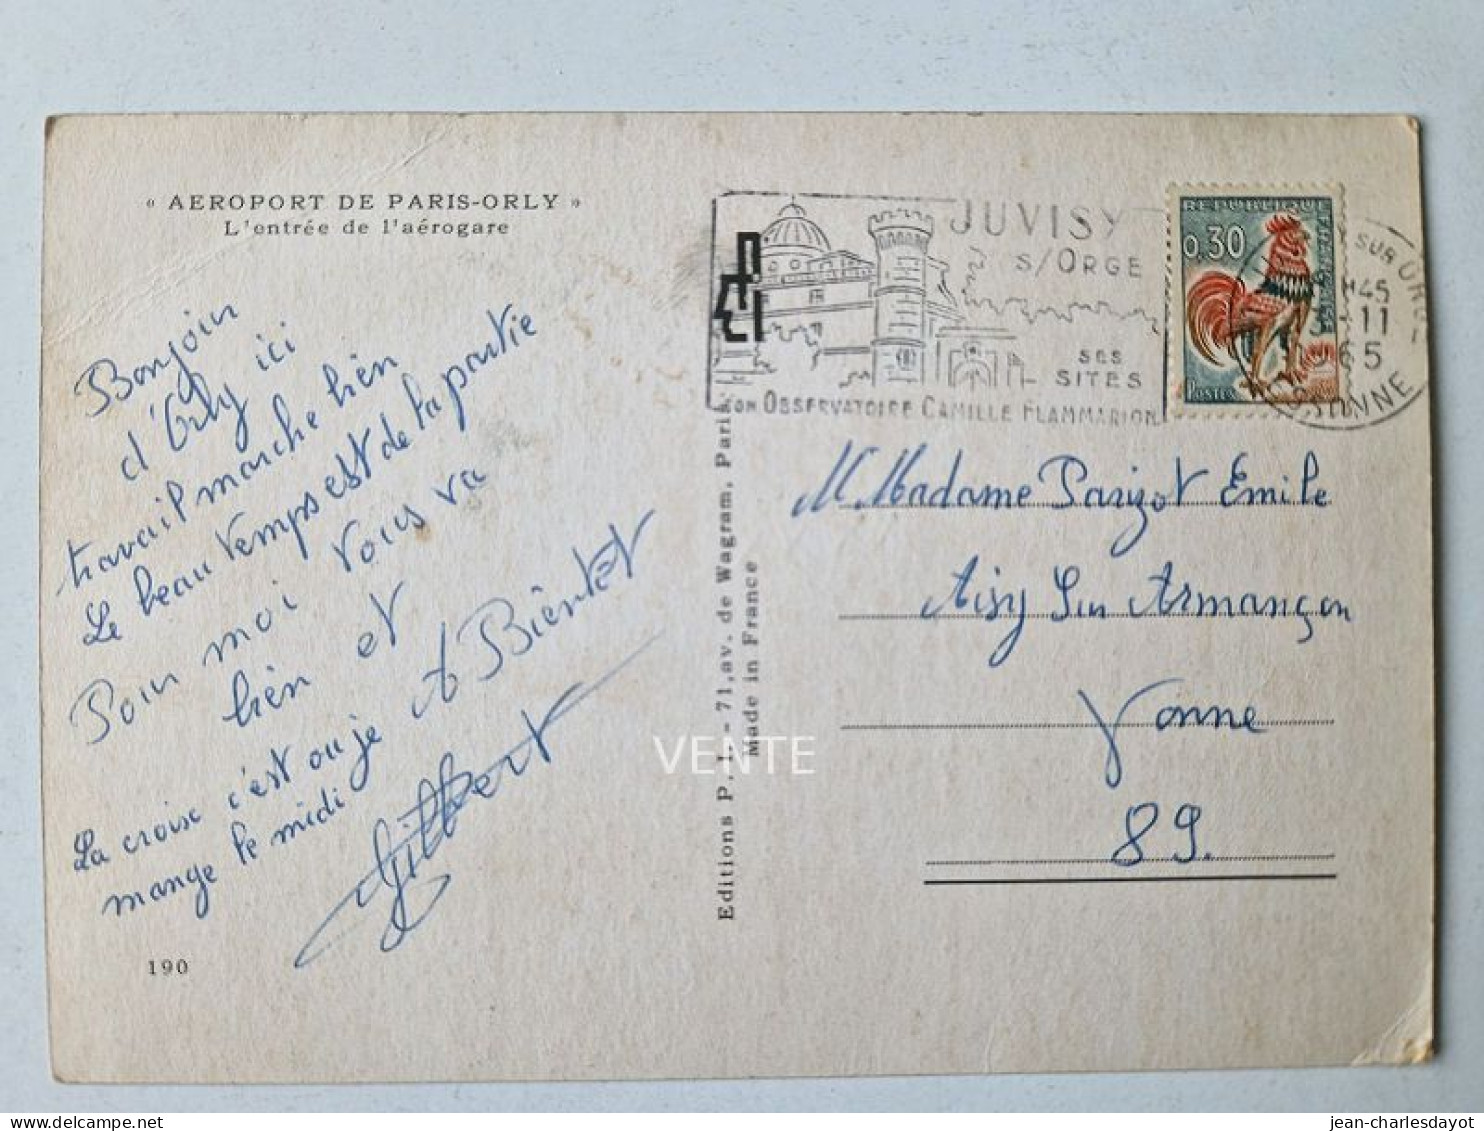 « AEROPORT DE PARIS-ORLY »
L'entrée de l'aérogare
Bonjour
d'Orly ici
travail marche bien
Le beau temps est de la partie
Pour moi vous va
bien et
La croix c'est ou je
mange le midi
A Bientôt
Gilbert
190
Editions P. I. - 71, av. de Wagram, Paris.
Made in France
JUVISY
S/ORGE
SES
SITES
SON OBSERVATOIRE CAMILLE FLAMMARION
REPUBLIQUE FRANÇAISE
0,30
POSTES
SUR ORGE
H45
11
65
ESSONNE
M. Madame Parizot Emile
Aisy Sur Armançon
Yonne
89.
VENTE
jean-charlesdayot